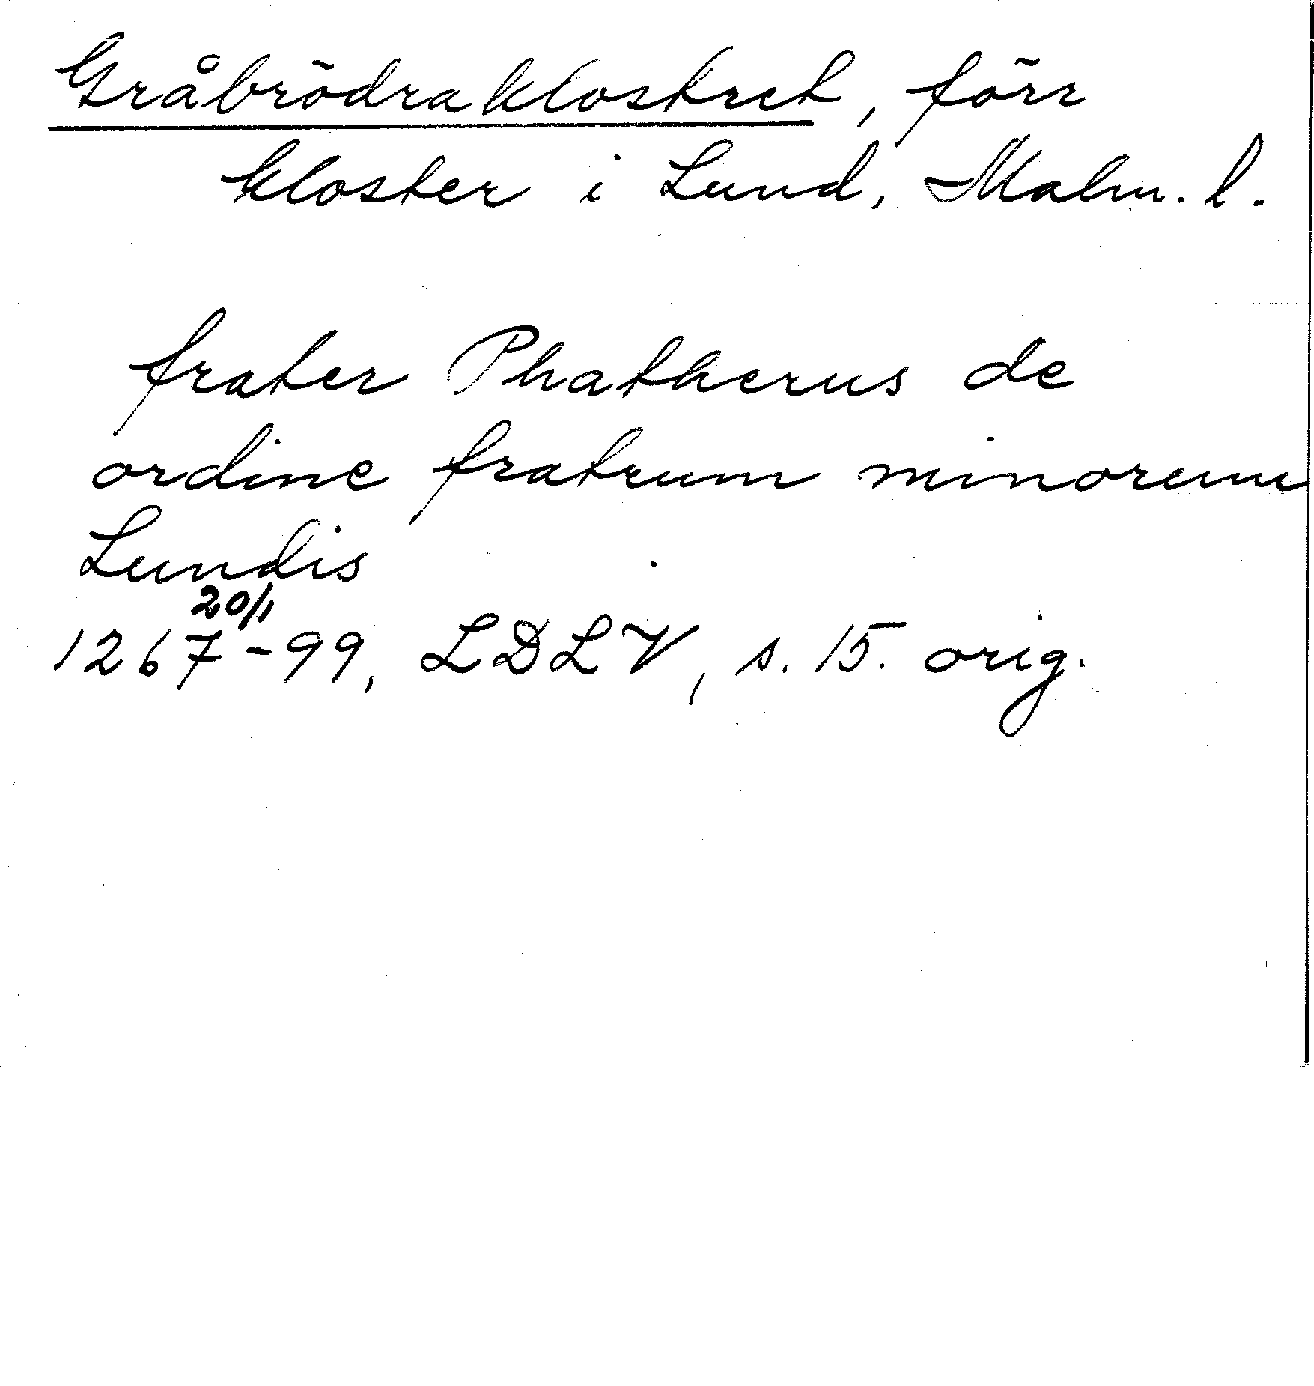 Gråbrödraklostret, förr
kloster i Lund, Malm. l.
frater Phatherus de
ordine fratrum minorum
Lundis
20/1
1267-99, LDLV, s. 15. orig.